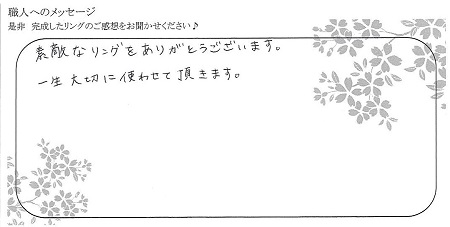 職人へのメッセージ
是非 完成したリングのご感想をお聞かせください♪
素敵なリングをありがとうございます。
一生大切に使わせて頂きます。